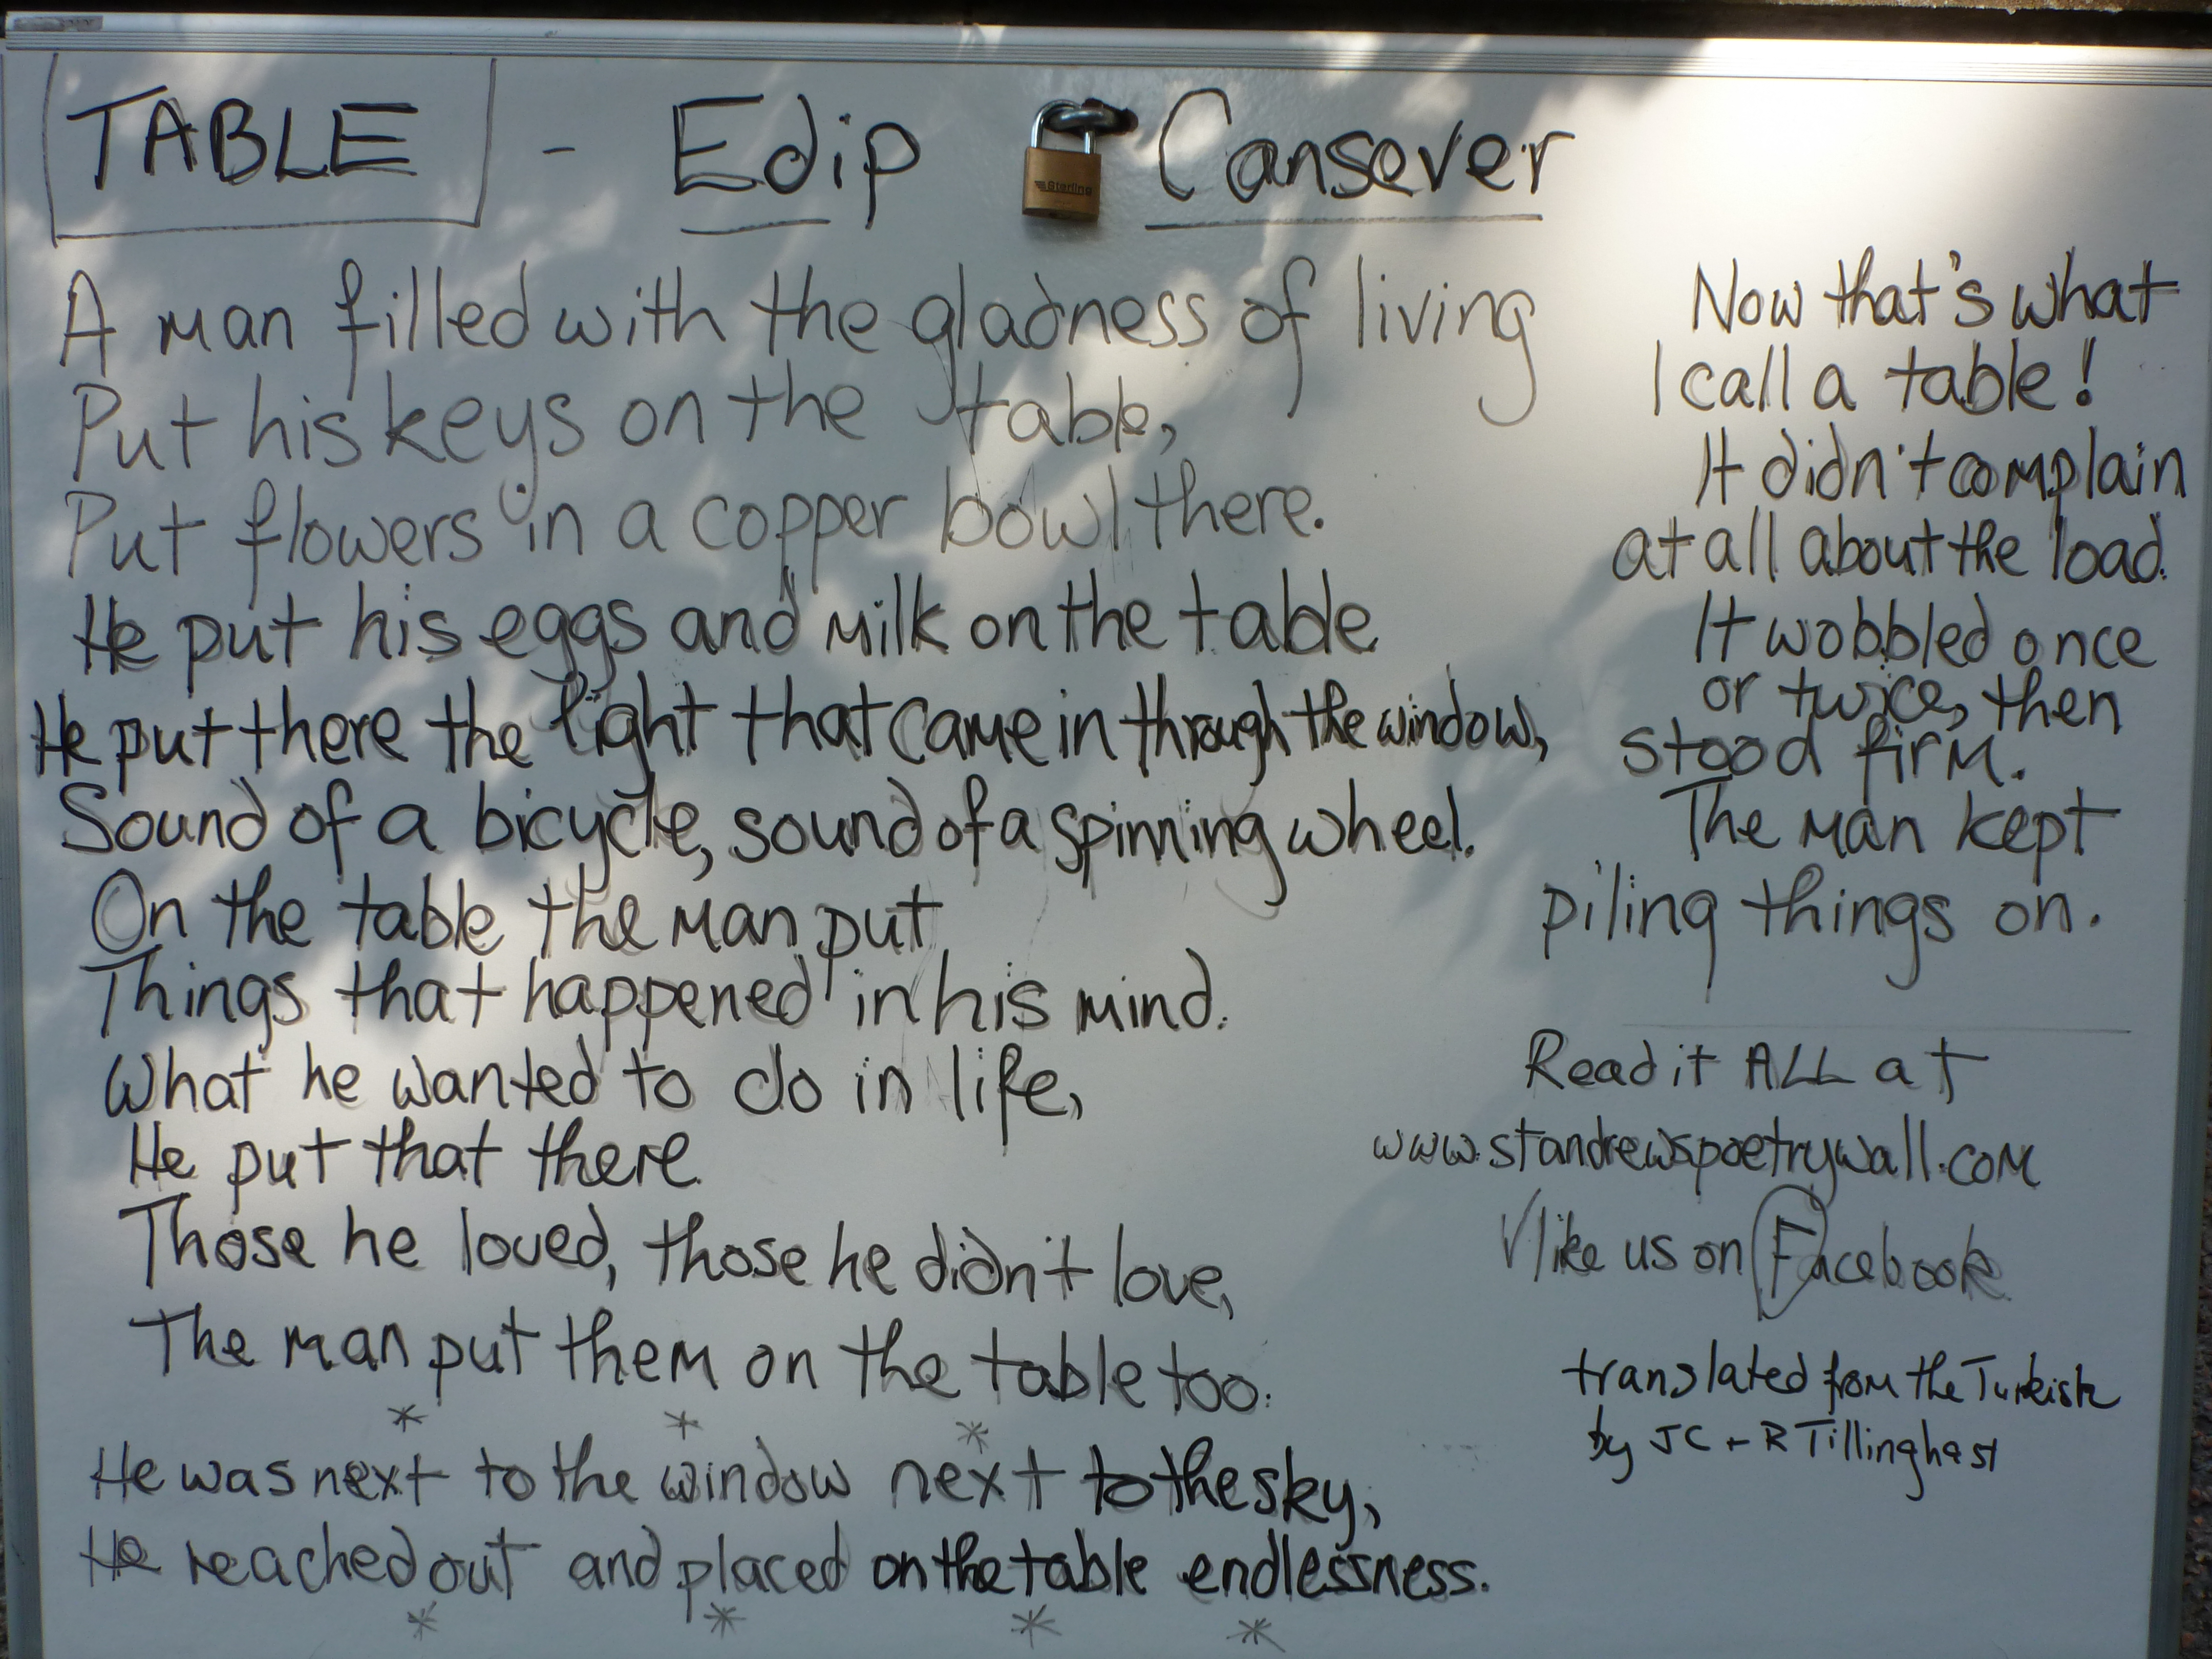 TABLE - Edip Cansever
Sterling
A man filled with the gladness of living
Put his keys on the table,
Put flowers in a copper bowl there.
He put his eggs and milk on the table
He put there the light that came in through the window,
Sound of a bicycle, sound of a spinning wheel.
On the table the man put
Things that happened in his mind.
What he wanted to do in life,
He put that there.
Those he loved, those he didn't love,
The man put them on the table too.
* * *
He was next to the window next to the sky,
He reached out and placed on the table endlessness.
* * * *
Now that's what
I call a table!
It didn't complain
at all about the load.
It wobbled once
or twice, then
stood firm.
The man kept
piling things on.
Read it ALL at
www.standrewspoetrywall.com
√ like us on Facebook
translated from the Turkish
by JC + R Tillinghast